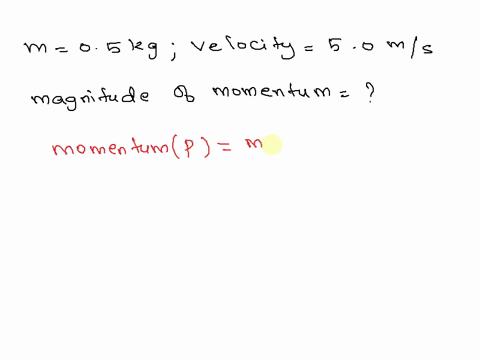 m = 0.5 kg ; velocity = 5.0 m/s
magnitude of momentum = ?
momentum(P) = m